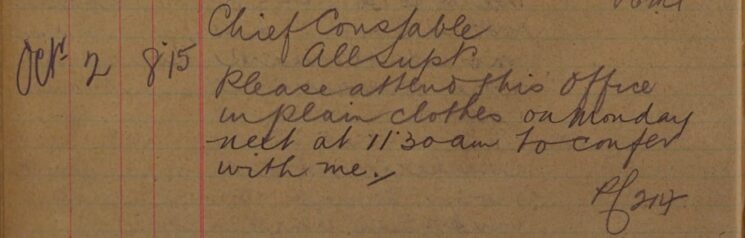 Chief Constable
Octr 2 8.15 All Supts
Please attend this Office
in plain clothes on Monday
next at 11.30 am to confer
with me.
PC 214